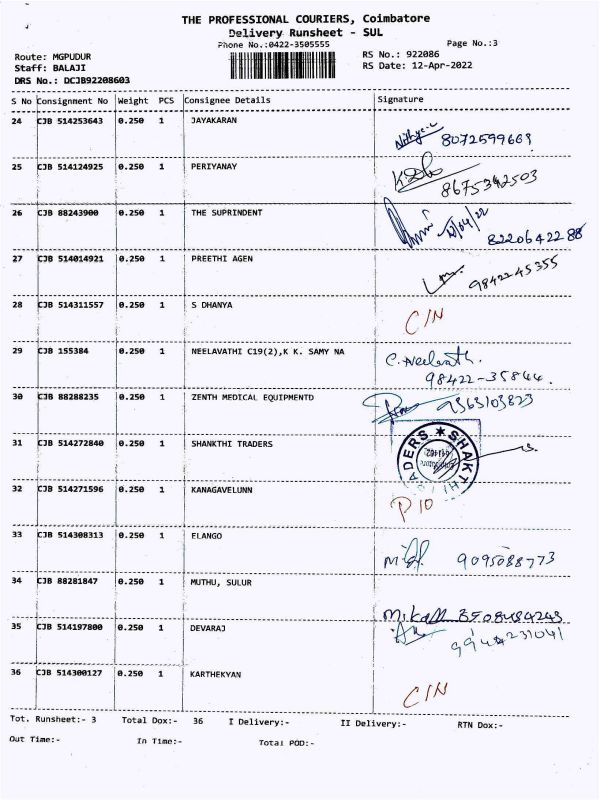 THE PROFESSIONAL COURIERS, Coimbatore
Delivery Runsheet - SUL
Phone No.:0422-3505555
Page No.:3
Route: MGPUDUR
RS No.: 922086
Staff: BALAJI
RS Date: 12-Apr-2022
DRS No.: DCJB92208603
S No Consignment No Weight PCS Consignee Details Signature
24 CJB 514253643 0.250 1 JAYAKARAN
8072599669
25 CJB 514124925 0.250 1 PERIYANAY
8675342503
26 CJB 88243900 0.250 1 THE SUPRINDENT
12/04/22
8220642288
27 CJB 514014921 0.250 1 PREETHI AGEN
9842245355
28 CJB 514311557 0.250 1 S DHANYA
C/N
29 CJB 155384 0.250 1 NEELAVATHI C19(2),K K. SAMY NA
98422-35844.
30 CJB 88288235 0.250 1 ZENTH MEDICAL EQUIPMENTD
9363103823
31 CJB 514272840 0.250 1 SHANKTHI TRADERS
32 CJB 514271596 0.250 1 KANAGAVELUNN
P10
33 CJB 514308313 0.250 1 ELANGO
9095088773
34 CJB 88281847 0.250 1 MUTHU, SULUR
35 CJB 514197800 0.250 1 DEVARAJ
36 CJB 514300127 0.250 1 KARTHEKYAN
C/N
Tot. Runsheet:- 3 Total Dox:- 36 I Delivery:- II Delivery:- RTN Dox:-
Out Time:- In Time:- Total POD:-